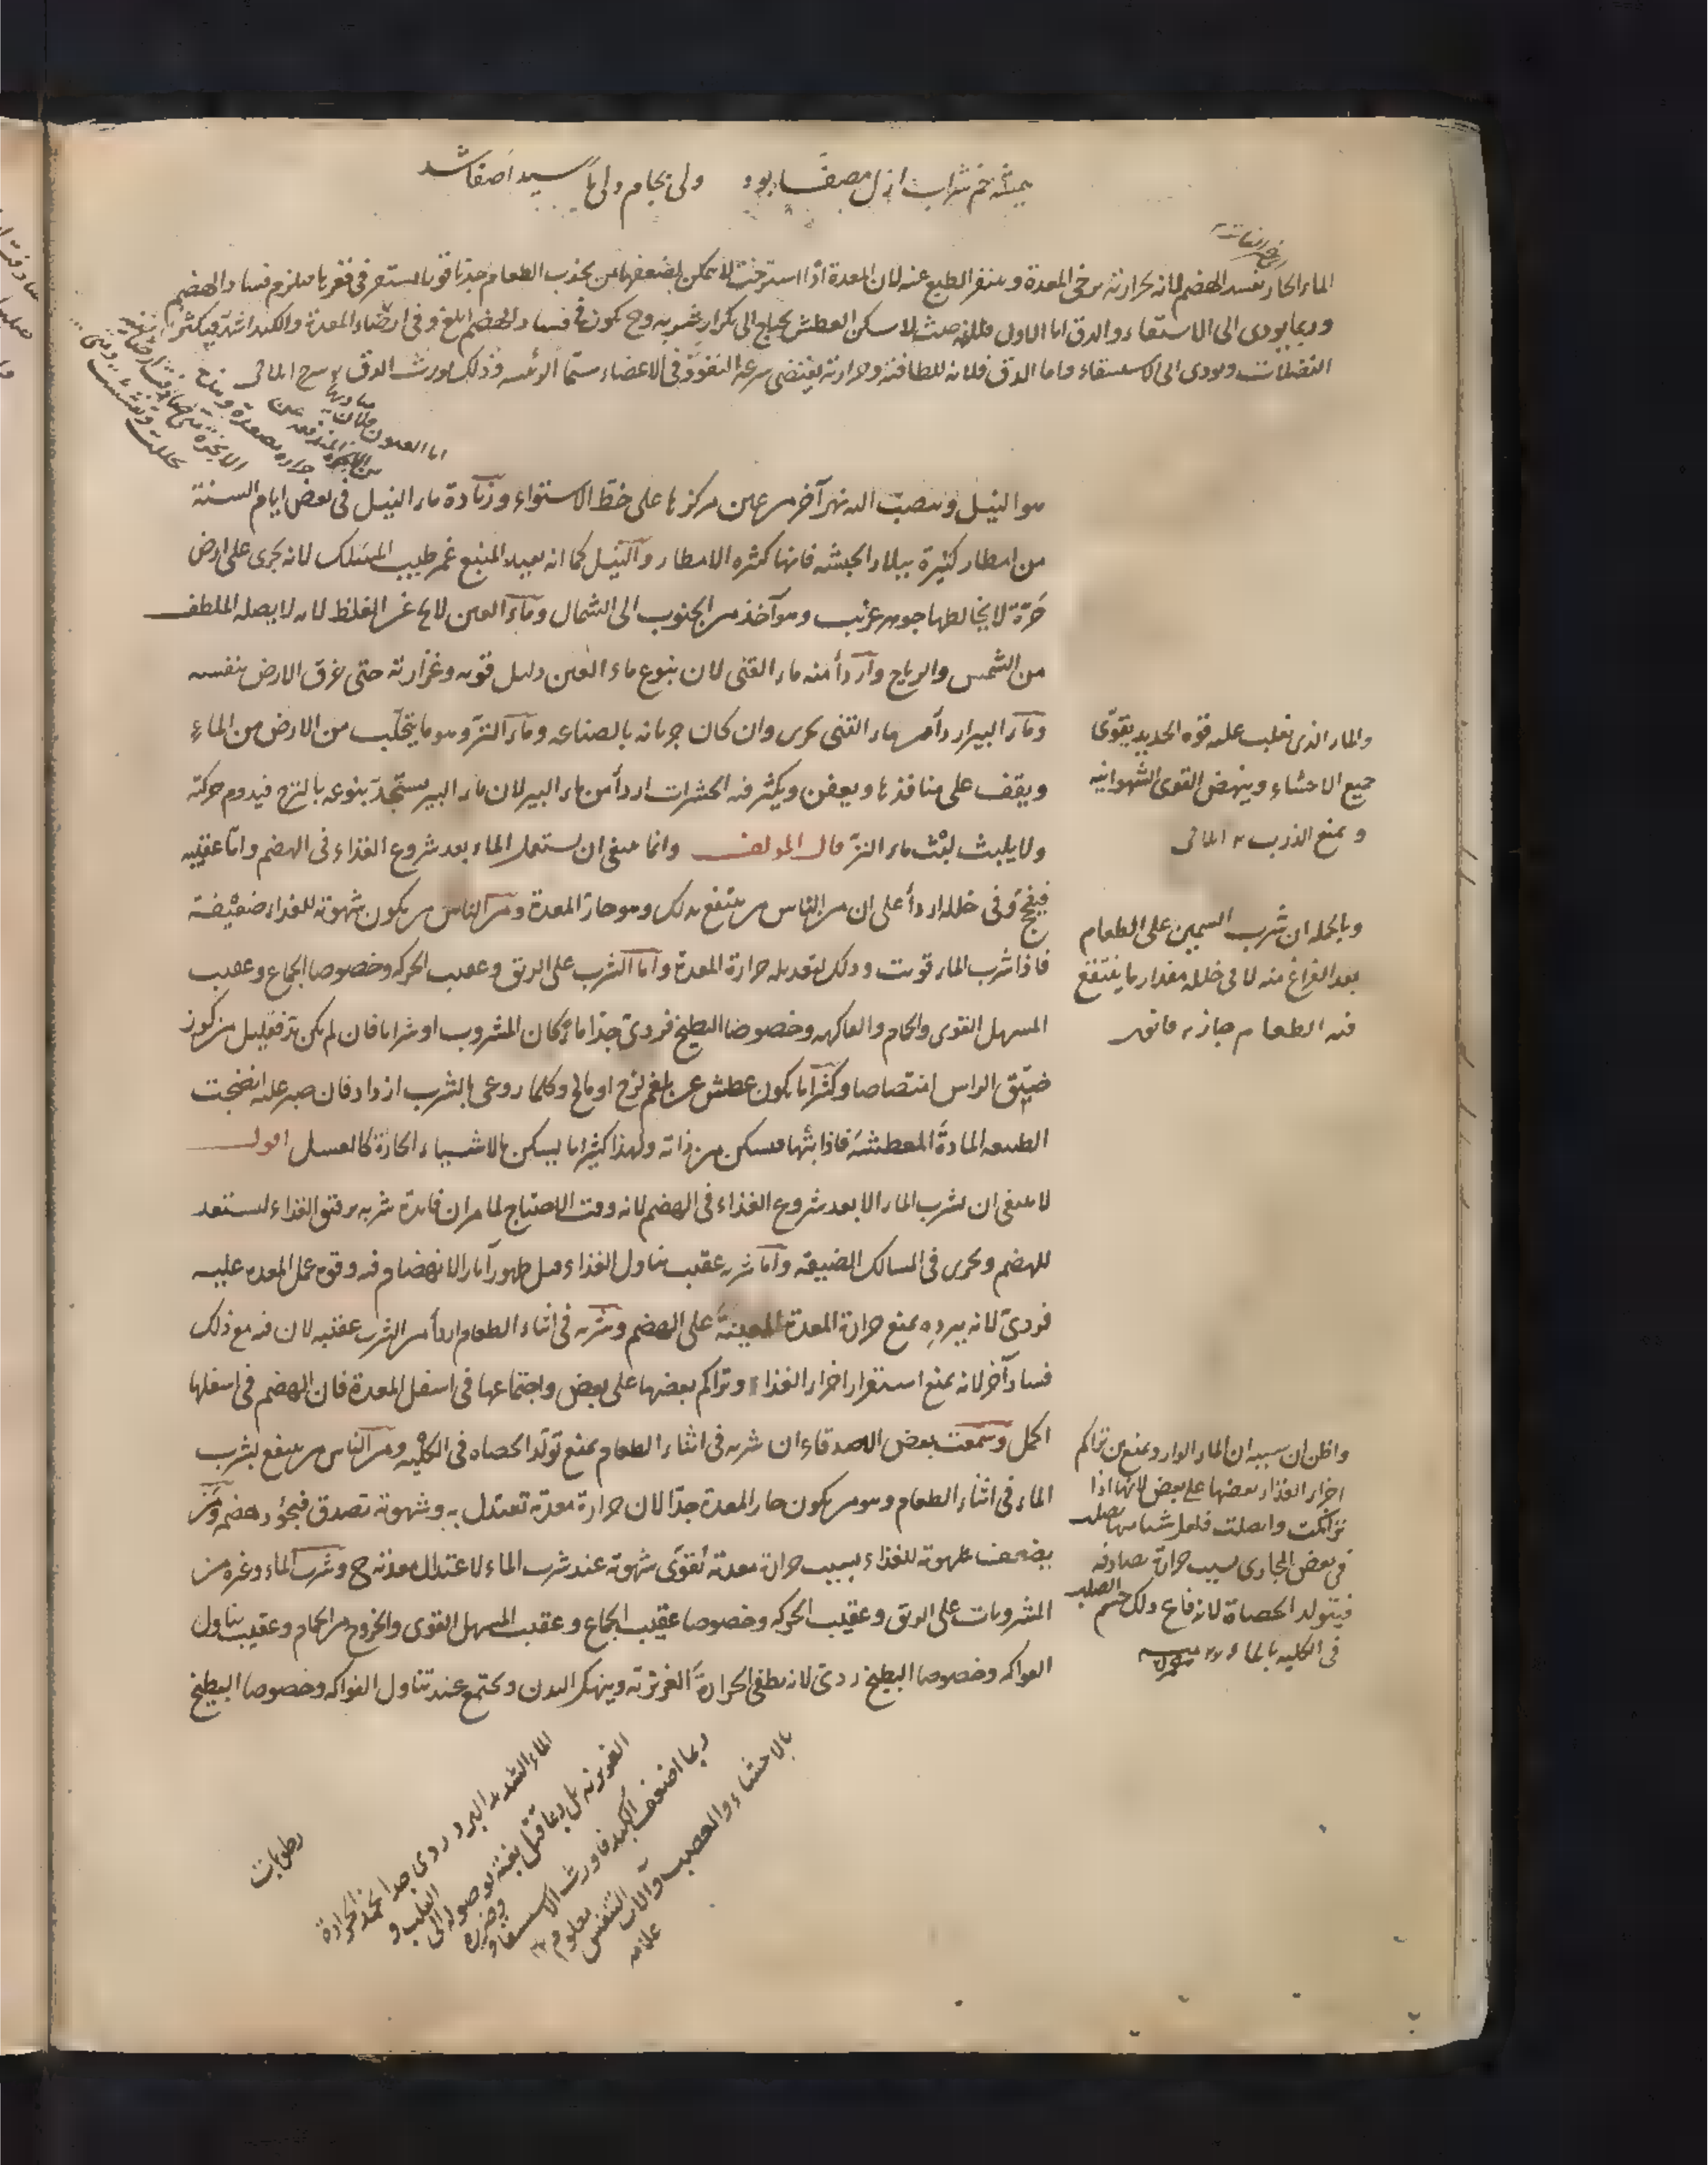 همیشه خم شراب ازل مصفا بود ولی بجام ولی
الماء الحار يفسد الهضم لانه بحرارته يرخى المعدة و ينفر الطبع عنه لان المعدة اذا استرخت لا يمكن لضعفها من بجذب الطعام جذبا قويا ليستقر فى قعرها فيلزم فساد الهضم
وربما يودى الى الاستسقاء والدق اما الاول فلانه حيث لا يسكن العطش يحتاج الى تكرار شربه وح يكون فى فساد الهضم ابلغ و فى ارخاء المعدة والكبد اشد فيكثر
الفضلات ويودى الى الاستسقاء واما الدق فلانه للطافته وحرارته يقتضى سرعة النفوذ فى الاعضاء سيما الرئيسه وذلك يورث الدق
هو النيل ومنصب اليه نهر آخر من عين مركزها على خط الاستواء وزيادة ماء النيل فى بعض ايام السنة
من امطار كثيرة ببلاد الحبشه فانها كثيره الامطار والنيل كما انه بعيد المنبع غمر طيب المسلك لانه يجرى على ارض
حرة لا يخالطها جوهر غريب وهو آخذ من الجنوب الى الشمال وماء العين لا يخ عن الغلظ لانه لا يصله الملطف
من الشمس والرياح واردأ منه ماء القنى لان ينبوع ماء العين دليل قوته وغزارته حتى خرق الارض بنفسه
وماء البير اردأ من ماء القنى يجرى وان كان جريانه بالصناعه وماء النز وهو ما يتحلب من الارض من الماء
ويقف على منافذها ويعفن ويكثر فيه الحشرات اردأ من ماء البير لان ماء البير يستجد ينبوعه بالنزح فيدوم حركته
ولا يلبث لبث ماء النز قال المولف وانما ينبغى ان يستعمل الماء بعد شروع الغذاء فى الهضم واما عقيبه
فيفج وفى خلله اردأ على ان من الناس من ينتفع بذلك وهو حار المعدة ومن الناس من يكون شهوته للغذاء ضعيفة
فاذا شرب الماء قويت وذلك لتعديله حرارة المعدة واما الشرب على الريق وعقيب الحركه وخصوصا الجماع وعقيب
المسهل القوى والحمام والفاكهه وخصوصا البطيخ فردئ جدا ماء كان المشروب او شرابا فان لم يكن بد فقليل من كوز
ضيق الراس امتصاصا وكثيرا ما يكون عطش عن بلغم لزج او مالح وكلما روعى بالشرب ازداد فان صبر عليه انضجت
الطبيعه المادة المعطشة فاذابتها فيسكن من ذاته ولهذا كثيرا ما يسكن بالاشياء الحارة كالعسل اقول
لا ينبغى ان يشرب الماء الا بعد شروع الغذاء فى الهضم لانه وقت الاحتياج لما مر ان فايدة شربه يرقق الغذاء ليستعد
للهضم ويجرى فى المسالك الضيقه واما شربه عقيب تناول الغذاء قبل ظهور آثار الانهضام فيه و قوه عمل المعده عليه
فردئ لانه ببرده يمنع حرارة المعدة المعينة على الهضم وشربه فى اثناء الطعام اردأ من الشرب عقيبه لان فيه مع ذلك
فسادا آخر لانه يمنع استقرار اجزاء الغذاء وتراكم بعضها على بعض واجتماعها فى اسفل المعدة فان الهضم فى اسفلها
اكمل وسمعت بعض الاصدقاء ان شربه فى اثناء الطعام يمنع تولد الحصاه فى الكليه ومن الناس من ينتفع بشرب
الماء فى اثناء الطعام وهو من يكون حار المعدة جدا لان حرارة معدته تعتدل به وشهوته تصدق فيجود هضمه ومن
يضعف شهوته للغذاء بسبب حرارة معدته تقوى شهوته عند شرب الماء لاعتدال معدته ح وشرب الماء وغيره من
المشروبات على الريق وعقيب الحركه وخصوصا عقيب الجماع وعقيب المسهل القوى والخروج من الحمام وعقيب تناول
الفواكه وخصوصا البطيخ ردئ لانه يطفى الحرارة الغريزته وينهك البدن ويجتمع عند تناول الفواكه وخصوصا البطيخ
رطوبات
والماء الذى يغلب عليه قوه الحديد يقوى
جميع الاحشاء وينهض القوى الشهوانيه
و يمنع الذرب
وبالجمله ان شرب على الطعام
بعد الفراغ منه لا فى خلله مقدار ما ينتفع
فيه الطعام جاز
واظن ان سببه ان الماء الوارد يمنع من تراكم
اجزاء الغذاء بعضها على بعض لانها اذا
تراكمت واتصلت فلعل شيئا منها
فى بعض المجارى بسبب حرارة تصادفه
فيتولد الحصاة
فى الكليه
الماء الشديد البرد ردى جدا الحرارة
الغريزيه بل ربما قتل بغتة لوصوله الى القلب و
ربما اضعف الكبد فاورث الاستسقاء وضرره
بالاحشاء والعصب وآلات التنفس معلوم